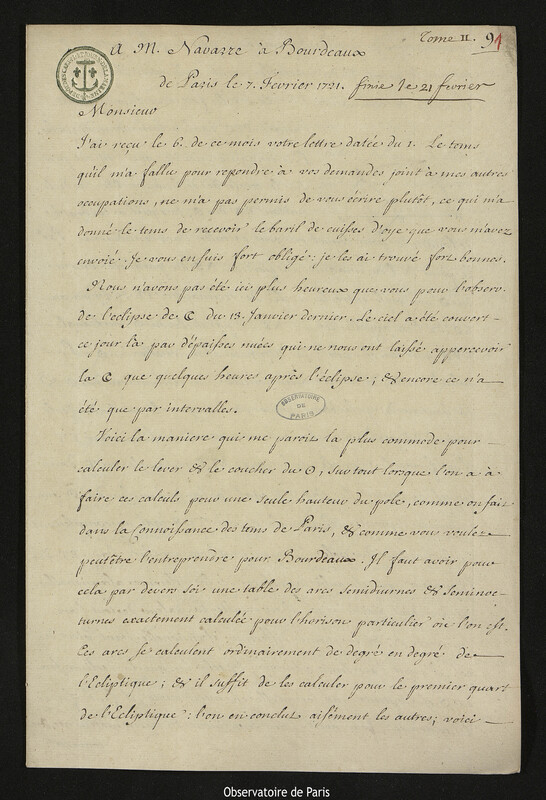 Tome II. 91
A M. Navarre à Bourdeaux
de Paris le 7. Fevrier 1721. finie le 21 fevrier
Monsieur
J'ai reçu le 6. de ce mois votre lettre datée du 1. Le tems
qu'il m'a fallu pour repondre à vos demandes joint à mes autres
occupations, ne m'a pas permis de vous écrire plutôt, ce qui m'a
donné le tems de recevoir le baril de cuisses d'oye que vous m'avez
envoié. Je vous en suis fort obligé: je les ai trouvé fort bonnes.
Nous n'avons pas été ici plus heureux que vous pour l'observ.
de l'eclipse de ☾ du 13. Janvier dernier. Le ciel a été couvert
ce jour là par d'épaisses nuées qui ne nous ont laissé appercevoir
la ☾ que quelques heures après l'éclipse; & encore ce n'a
été que par intervalles.
OBSERVATOIRE
DE
PARIS
Voici la maniere qui me paroit la plus commode pour
calculer le lever & le coucher du ☉, sur tout lorsque l'on a à
faire ces calculs pour une seule hauteur du pole, comme on fait
dans la Connoissance des tems de Paris, & comme vous voulez
peutêtre l'entreprendre pour Bourdeaux. Il faut avoir pour
cela par devers soi une table des arcs semidiurnes & seminoc-
turnes exactement calculée pour l'horison particulier où l'on est.
Ces arcs se calculent ordinairement de degré en degré de
l'Ecliptique; & il suffit de les calculer pour le premier quart
de l'Ecliptique: l'on en conclut aisément les autres; voici
Observatoire de Paris